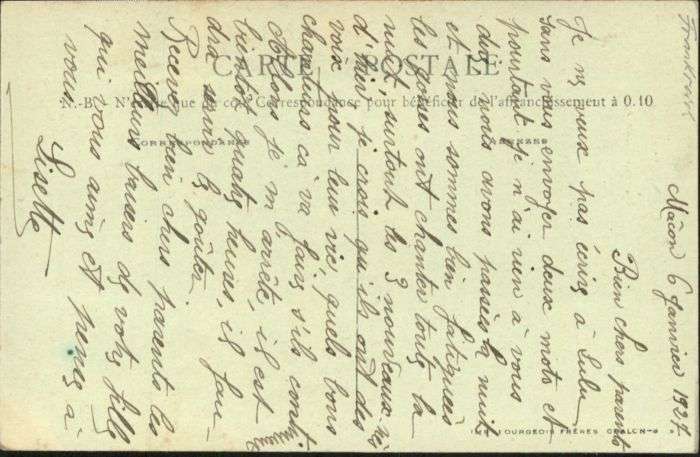 CARTE POSTALE
N.-B. N'écrire que du côté Correspondance pour bénéficier de l'affranchissement à 0.10
CORRESPONDANCE
IMP. BOURGEOIS FRÈRES CHALON-S-S
Mâcon 6 Janvier 1927
Bien chers parents
Je ne veux pas écrire à Lulu
sans vous envoyer deux mots et
pourtant je n'ai rien à vous
dire, nous avons passées la nuit
et nous sommes bien fatiguées
les gosses ont chanter toute la
nuit, surtout les 3 nouveaux nés
d'hier je crois qu'ils ont des
voix pour leur vie, quels bons
chanteurs ça va faire s'ils conti
nuent
Allons je m'arrête, il est
bientôt quatre heures, il fau-
dra servir le goûter.
Recevez bien chers parents les
meilleurs baisers de votre fille
qui vous aime et pense à
vous.
Lisette